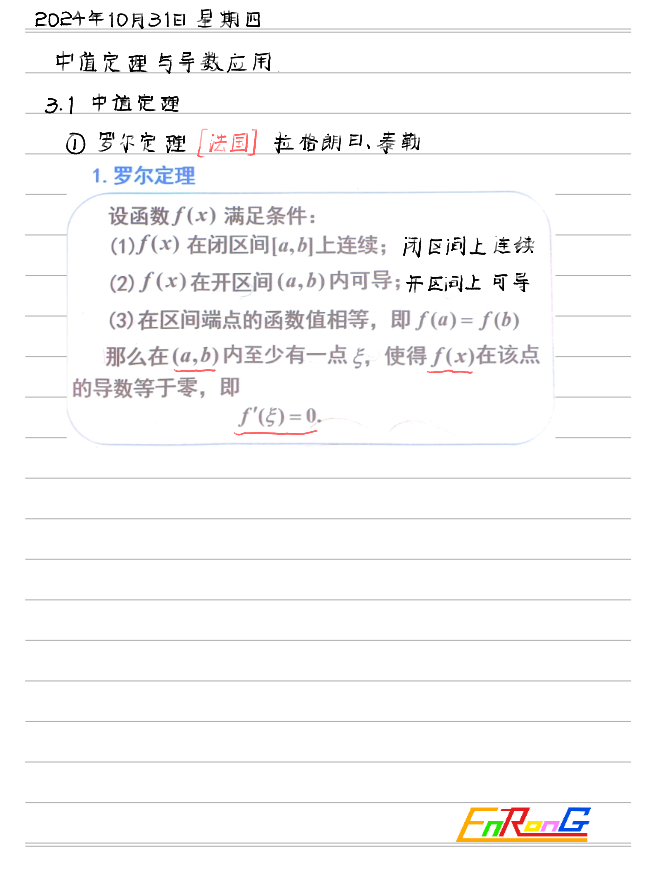 2024年10月31日 星期四
中值定理与导数应用
3.1 中值定理
① 罗尔定理 [法国] 拉格朗日、泰勒
1. 罗尔定理
设函数 f(x) 满足条件：
(1) f(x) 在闭区间[a,b]上连续； 闭区间上连续
(2) f(x) 在开区间 (a,b) 内可导； 开区间上可导
(3) 在区间端点的函数值相等，即 f(a) = f(b)
那么在 (a,b) 内至少有一点 ξ，使得 f(x) 在该点
的导数等于零，即
f′(ξ) = 0.
EnRonG